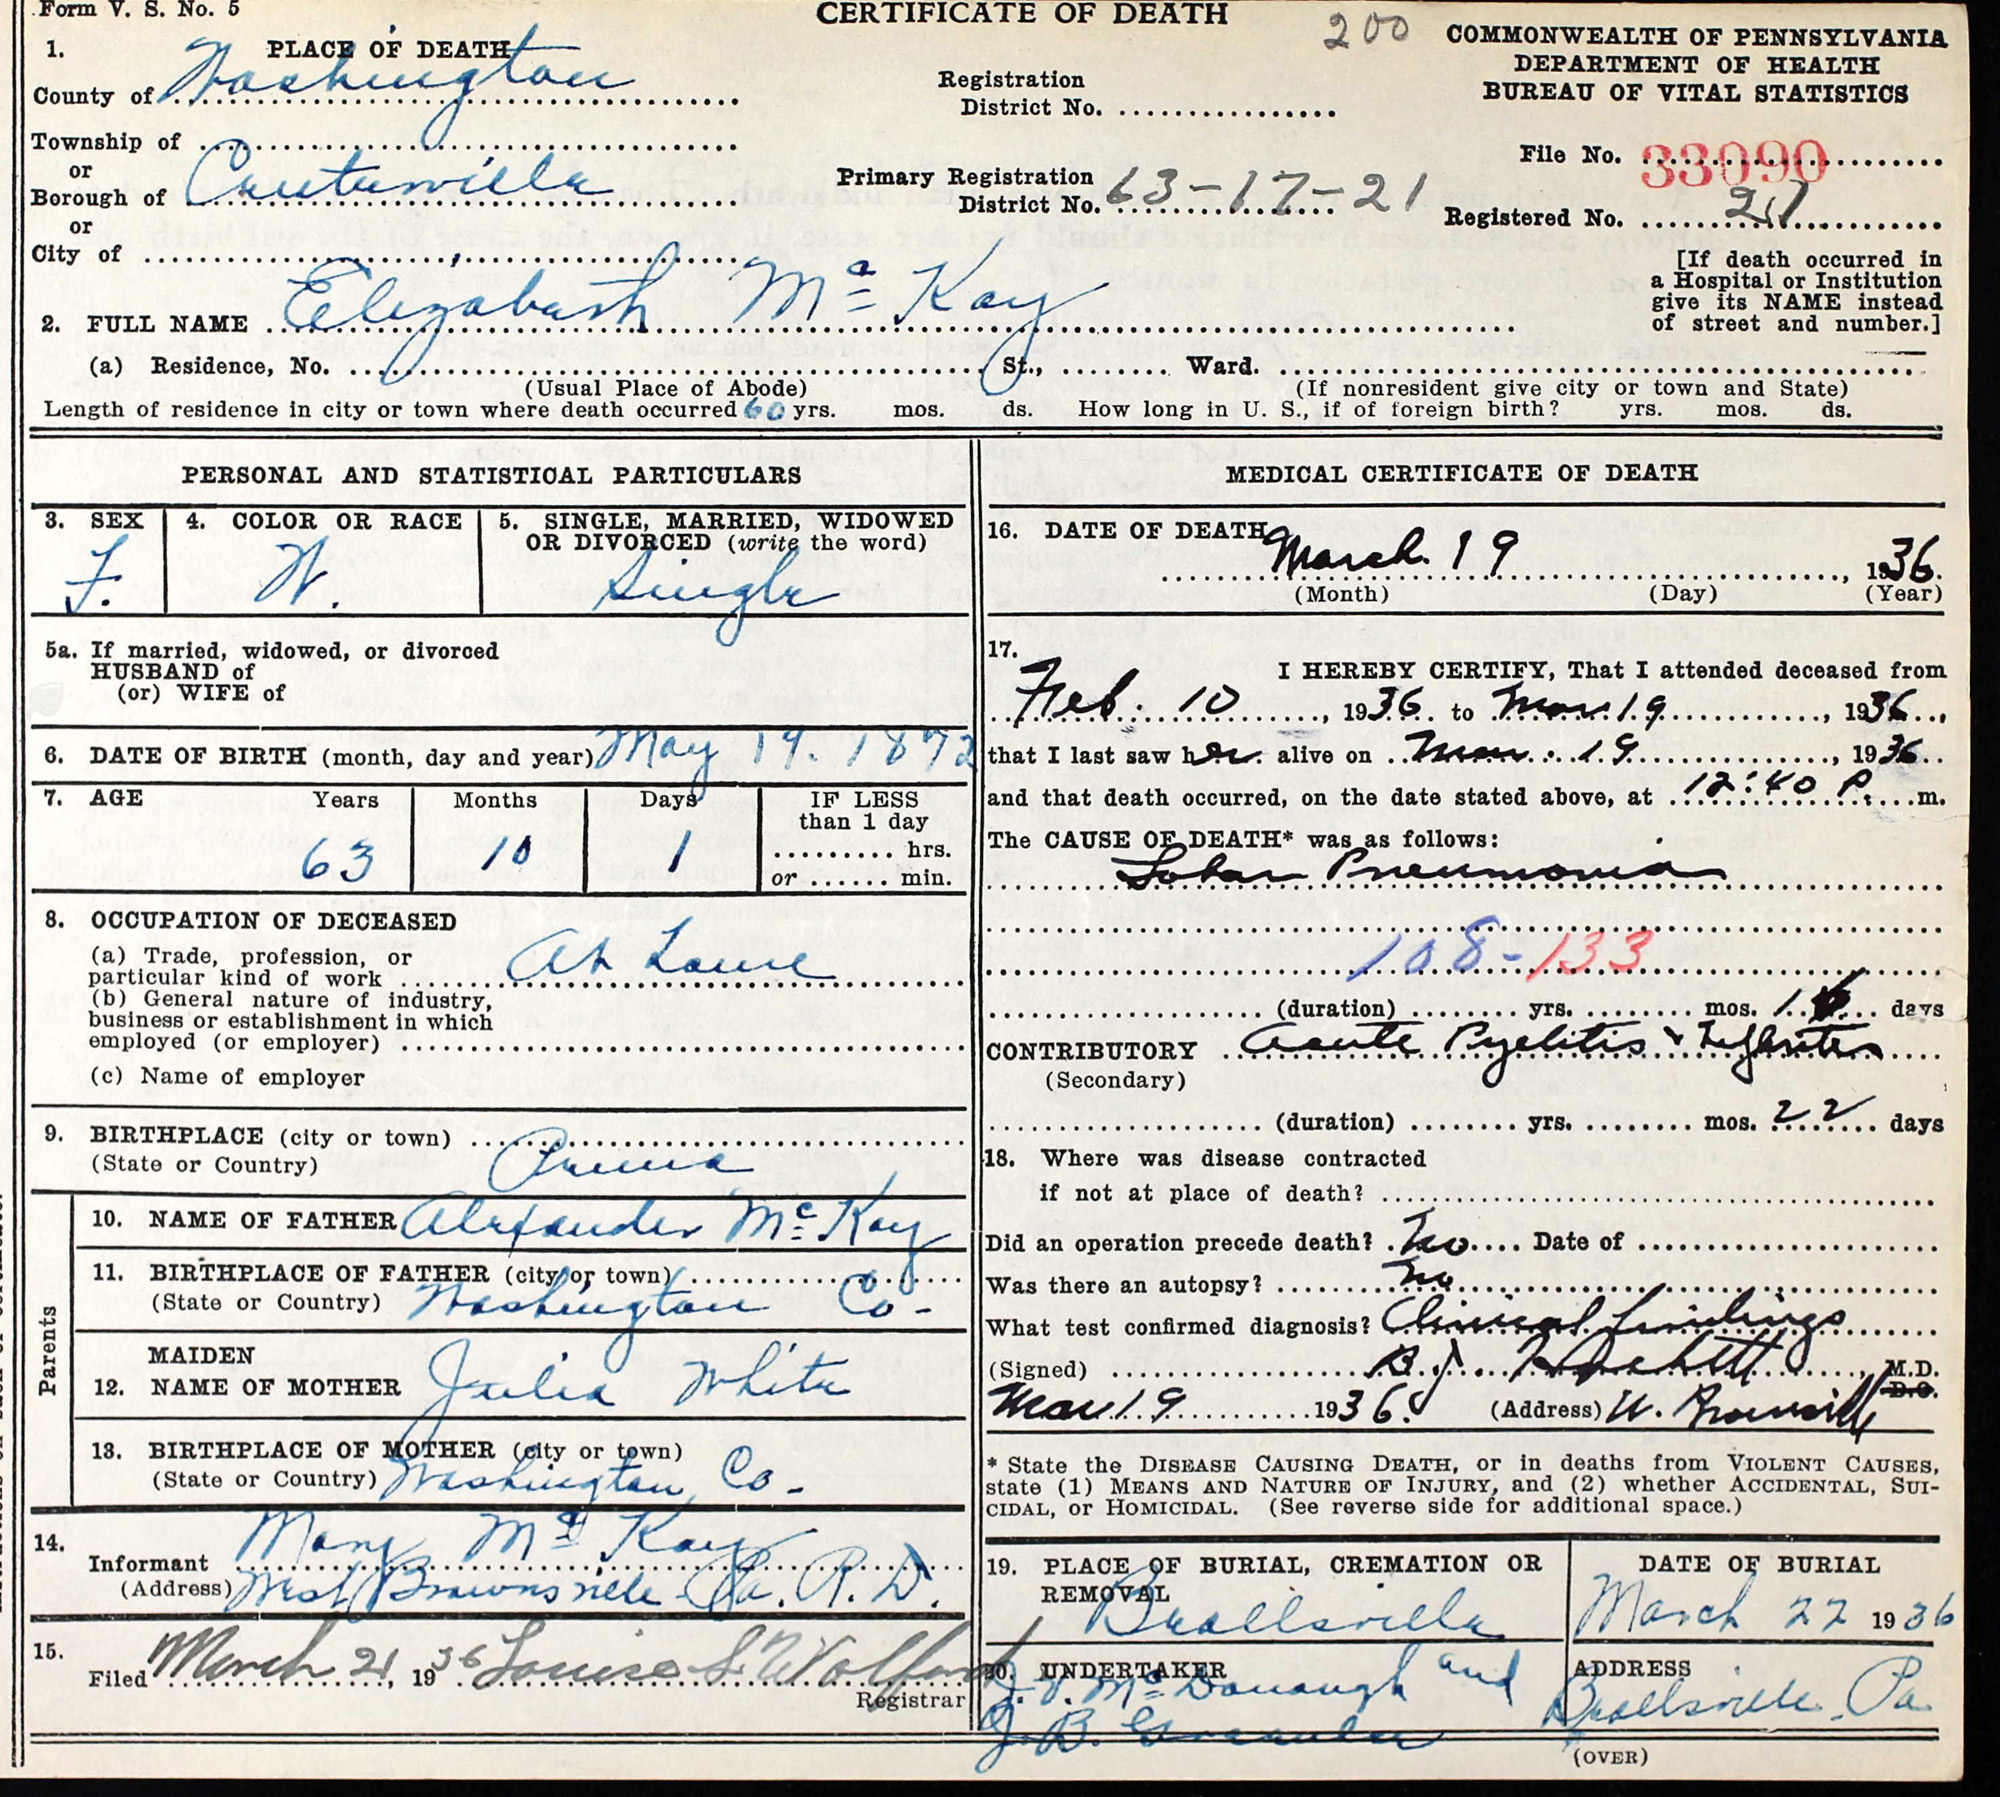 Form V. S. No. 5
CERTIFICATE OF DEATH
200
COMMONWEALTH OF PENNSYLVANIA
DEPARTMENT OF HEALTH
BUREAU OF VITAL STATISTICS
1. PLACE OF DEATH
County of Washington
Township of
or
Borough of Centerville
or
City of
Registration
District No.
Primary Registration
District No. 63-17-21
File No. 33090
Registered No.
[If death occurred in
a Hospital or Institution
give its NAME instead
of street and number.]
2. FULL NAME Elizabeth Mc Kay
(a) Residence, No. St., Ward.
(Usual Place of Abode) (If nonresident give city or town and State)
Length of residence in city or town where death occurred 60 yrs. mos. ds. How long in U. S., if of foreign birth? yrs. mos. ds.
PERSONAL AND STATISTICAL PARTICULARS
3. SEX
F.
4. COLOR OR RACE
W.
5. SINGLE, MARRIED, WIDOWED
OR DIVORCED (write the word)
Single
5a. If married, widowed, or divorced
HUSBAND of
(or) WIFE of
6. DATE OF BIRTH (month, day and year) May 19. 1872
7. AGE Years Months Days IF LESS
than 1 day
63 10 1 hrs.
or min.
8. OCCUPATION OF DECEASED
(a) Trade, profession, or
particular kind of work At Home
(b) General nature of industry,
business or establishment in which
employed (or employer)
(c) Name of employer
9. BIRTHPLACE (city or town)
(State or Country) Penna
Parents
10. NAME OF FATHER Alexander Mc Kay
11. BIRTHPLACE OF FATHER (city or town)
(State or Country) Washington Co-
MAIDEN
12. NAME OF MOTHER Julia White
13. BIRTHPLACE OF MOTHER (city or town)
(State or Country) Washington Co-
14.
Informant Mary Mc Kay
(Address) West Brownsville Pa. R. D.
15.
Filed March 21, 1936 Louise S. Wolford
Registrar
MEDICAL CERTIFICATE OF DEATH
16. DATE OF DEATH
March 19, 1936.
(Month) (Day) (Year)
17.
I HEREBY CERTIFY, That I attended deceased from
Feb. 10, 1936 to Mar 19, 1936,
that I last saw her alive on Mar. 19, 1936
and that death occurred, on the date stated above, at 12:40 P.m.
The CAUSE OF DEATH* was as follows:
Lobar Pneumonia
108-133
(duration) yrs. mos. days
CONTRIBUTORY Acute Pyelitis &
(Secondary)
(duration) yrs. mos. 22 days
18. Where was disease contracted
if not at place of death?
Did an operation precede death? No Date of
Was there an autopsy? No
What test confirmed diagnosis? Clinical findings
(Signed) B. J. , M.D.
D.O.
Mar 19 1936. (Address) W. Brownsville
* State the DISEASE CAUSING DEATH, or in deaths from VIOLENT CAUSES,
state (1) MEANS AND NATURE OF INJURY, and (2) whether ACCIDENTAL, SUI-
CIDAL, or HOMICIDAL. (See reverse side for additional space.)
19. PLACE OF BURIAL, CREMATION OR
REMOVAL
Beallsville
DATE OF BURIAL
March 22 1936
20. UNDERTAKER
J. V. Mc Donough and
J. B. Greenlee
ADDRESS
Beallsville Pa
(OVER)